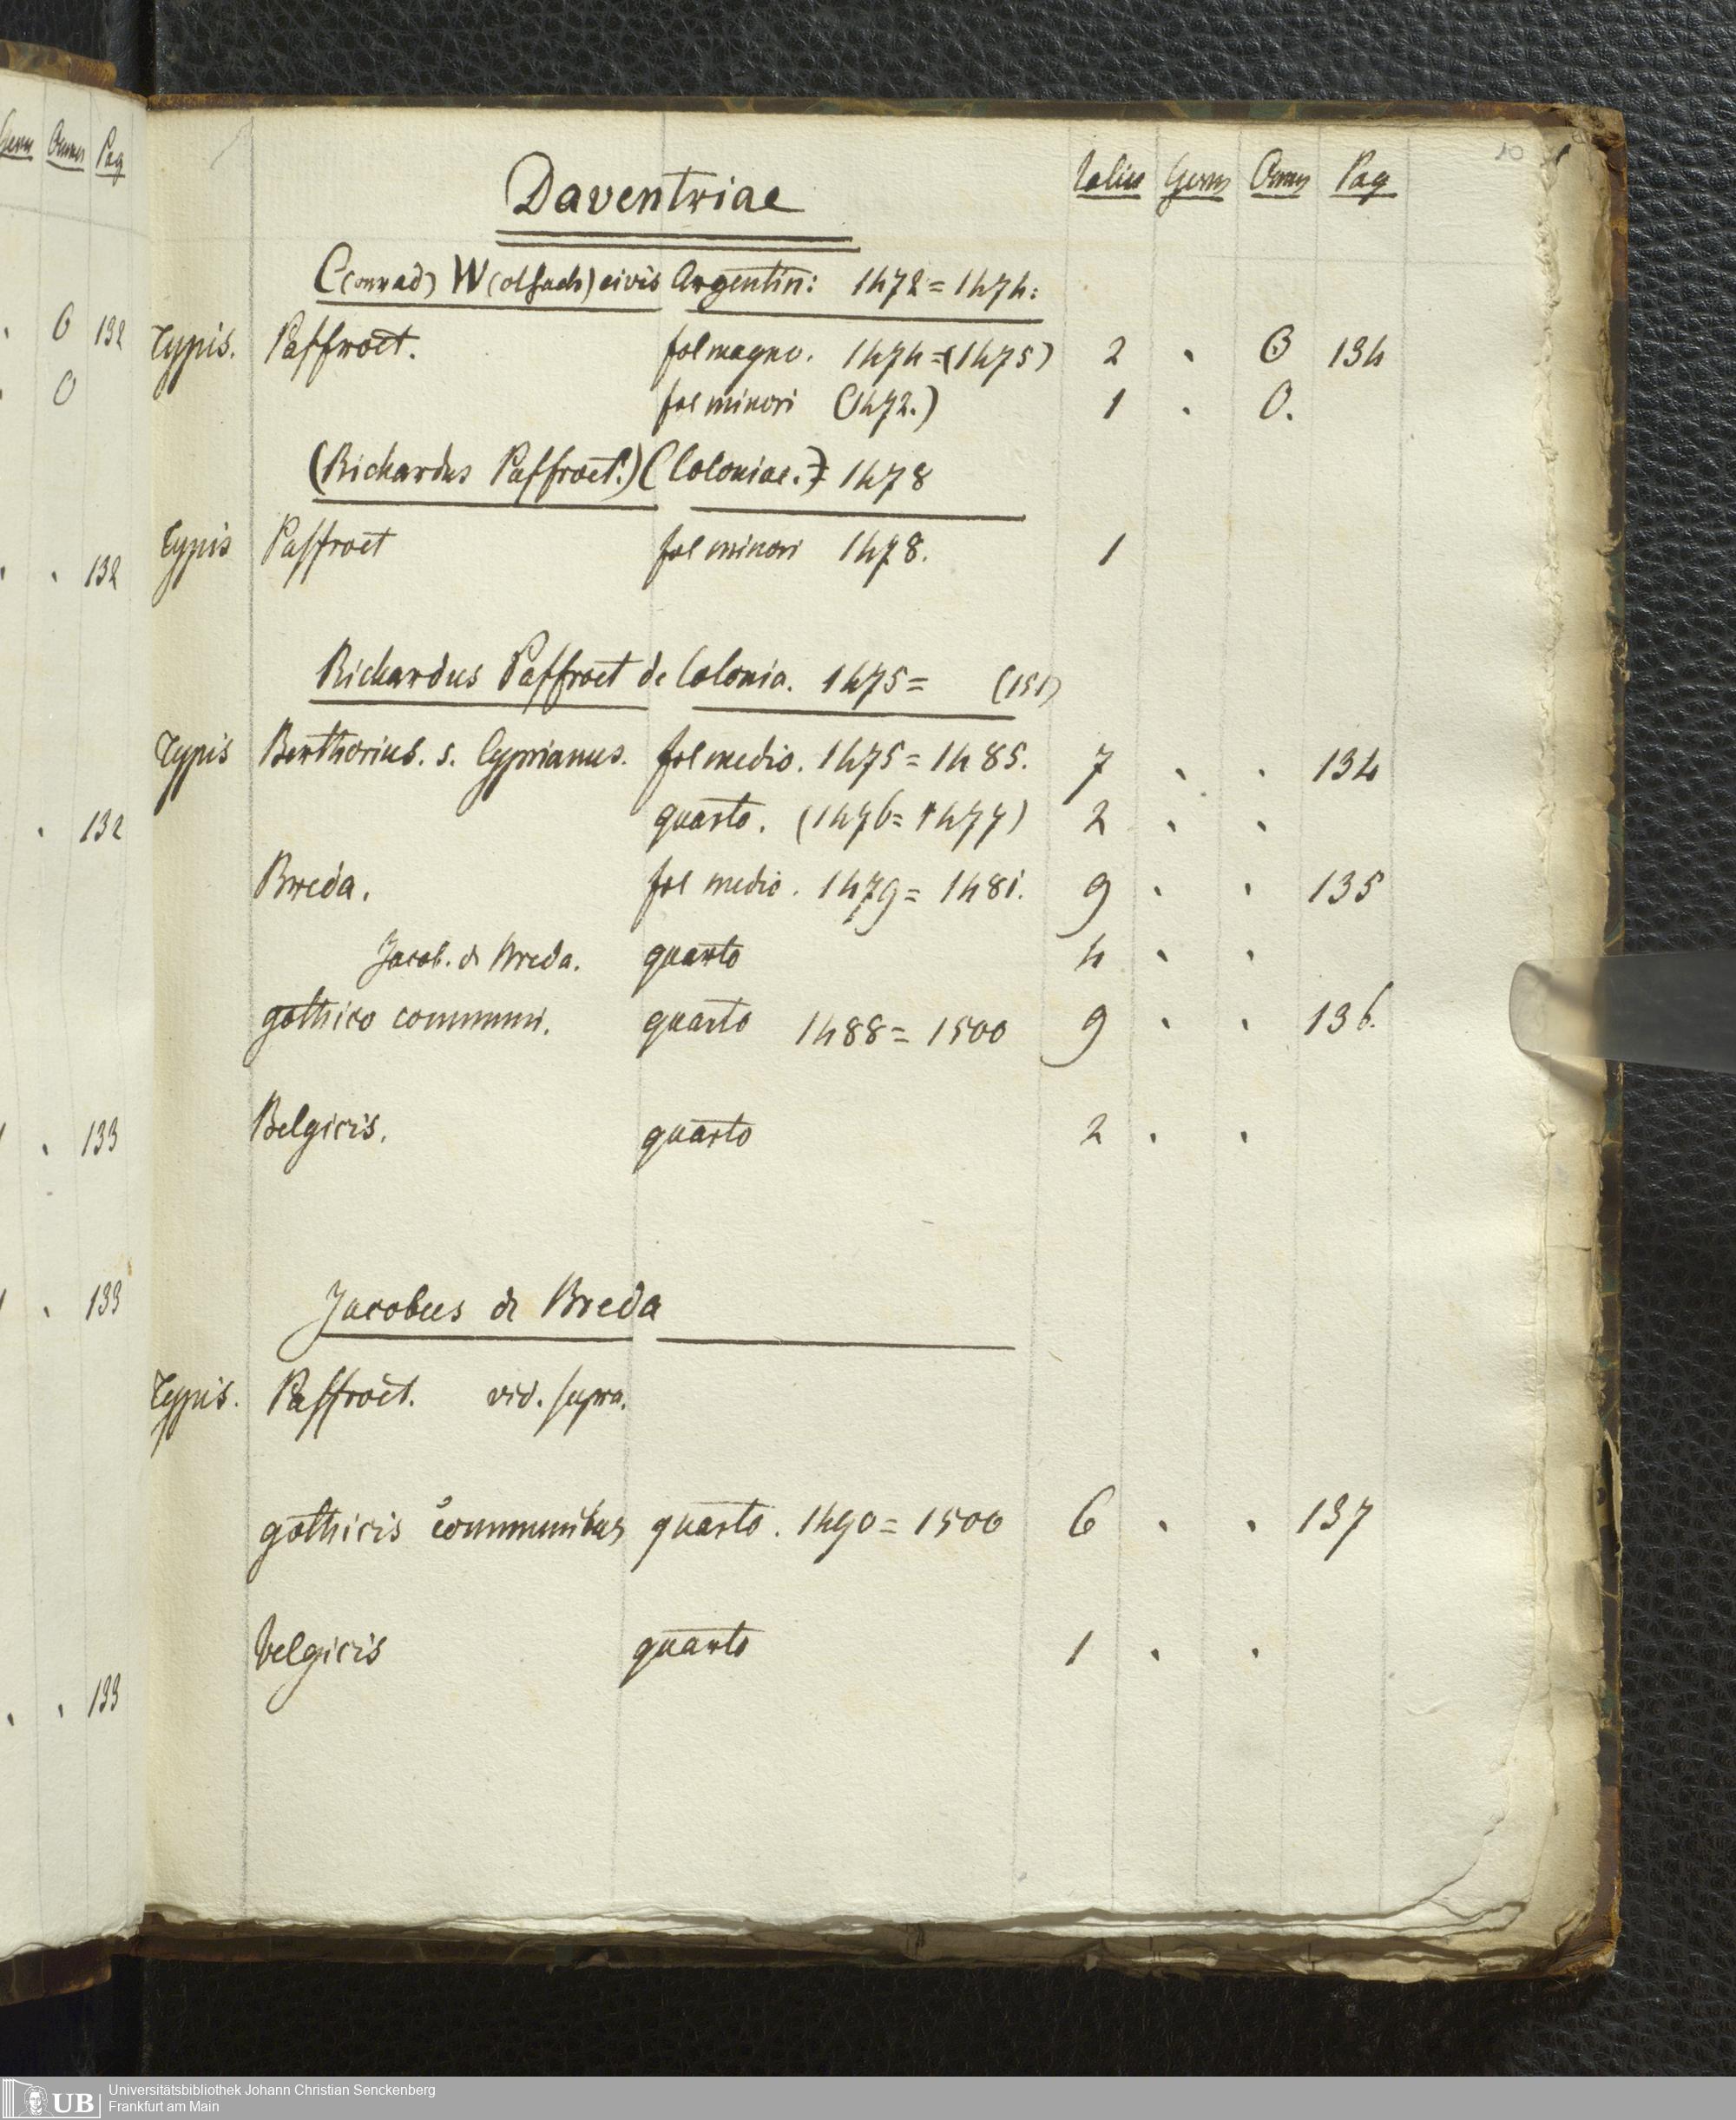 Germ Omn Pag
0 132
0
132
132
133
133
133
10
Daventriae
Germ Omn Pag
C(onrad) W(olfach) civis Argentin: 1472 = 1474:
Typis. Paffroet. fol magno. 1474 = (1475) 2 . 0 134
fol minori (1472.) 1 . 0.
(Richardus Paffroet.) (Coloniae.) = 1478
Typis Paffroet fol minori 1478. 1
Richardus Paffroet de Colonia. 1475 = (151)
Typis Berthorius. s. Cyprianus. fol medio. 1475 = 1485. 7 . . 134
quarto. (1476 = 1477) 2 . .
Breda. fol medio. 1479 = 1481. 9 . . 135
Jacob. de Breda. quarto 4 . .
gothico communi. quarto 1488 = 1500 9 . . 136.
Belgicis. quarto 2 . .
Jacobus de Breda
Typis. Paffroet. vid. supra.
gothicis communibus quarto. 1490 = 1500 6 . . 137
belgicis quarto 1 . .
UB Universitätsbibliothek Johann Christian Senckenberg
Frankfurt am Main